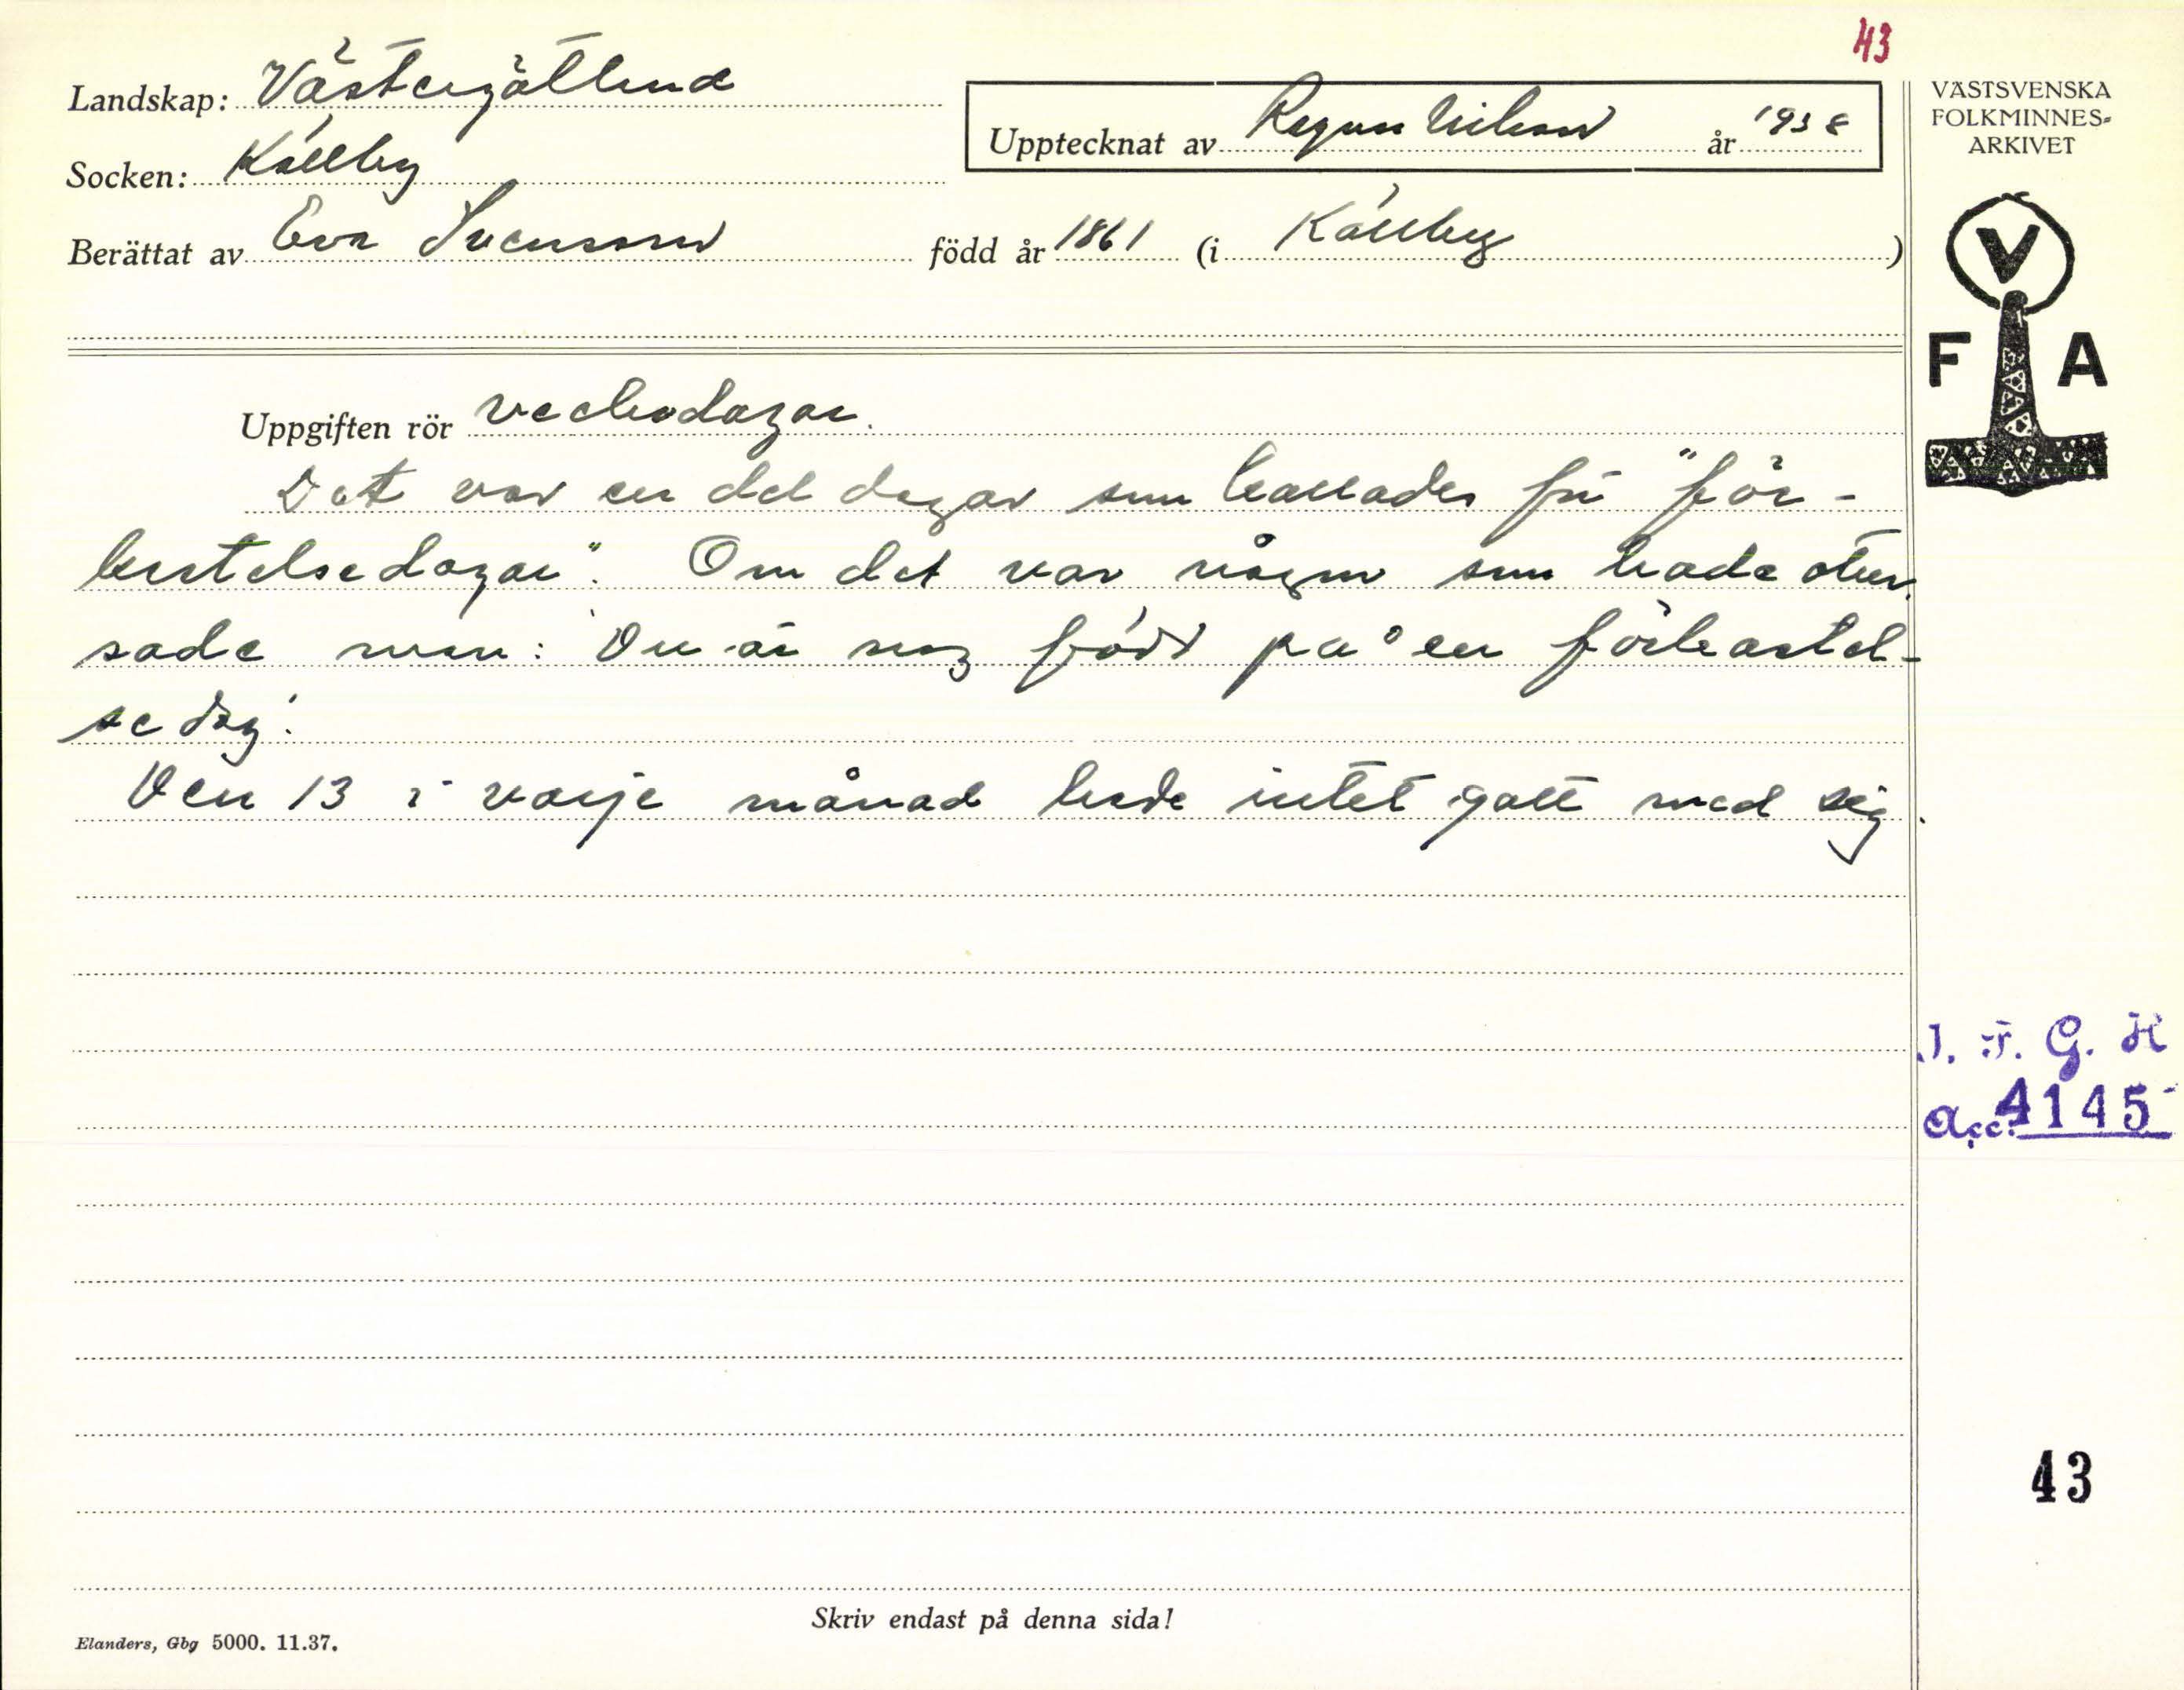 43
Landskap: Västergötland
Upptecknat av Ragnar Nilsson år 1938
VÄSTSVENSKA
FOLKMINNES-
ARKIVET
Socken: Källby
Berättat av Eva Svensson född år 1861 (i Källby)
V
F A
Uppgiften rör veckodagar.
Det var en del dagar som kallades för "för-
kastelsedagar". Om det var någon som hade otur
sade man: Du är nog född på en förkastel-
sedag.
Den 13 i varje månad hade intet gott med sig.
I. F. G. H
Acc. 4145
43
Skriv endast på denna sida!
Elanders, Gbg 5000. 11.37.